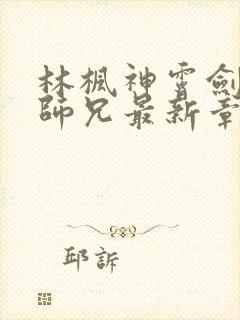 林楓神霄劍
師兄最新章
邱訴